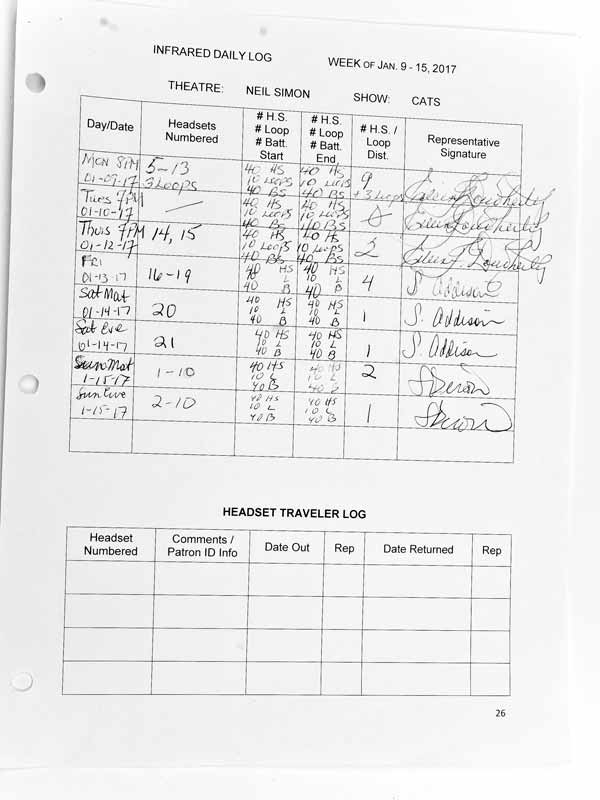 INFRARED DAILY LOG
WEEK OF JAN. 9 - 15, 2017
THEATRE: NEIL SIMON SHOW: CATS
Day/Date
Headsets
Numbered
# H.S.
# Loop
# Batt.
Start
# H.S.
# Loop
# Batt.
End
# H.S. /
Loop
Dist.
Representative
Signature
MON 8PM
01-09-17
5-13
3 Loops
40 HS
10 Loops
40 BS
40 HS
10 Loops
40 BS
9
+ 3 Loops
Tues 7PM
01-10-17
—
40 HS
10 Loops
40 BS
40 HS
10 Loops
40 BS
Thurs 7PM
01-12-17
14, 15
40 HS
10 Loops
40 BS
40 HS
10 Loops
40 BS
2
FRI
01-13-17
16-19
40 HS
10 L
40 B
40 HS
10 L
40 B
4
S. Addison
Sat Mat
01-14-17
20
40 HS
10 L
40 B
40 HS
10 L
40 B
1
S. Addison
Sat Eve
01-14-17
21
40 HS
10 L
40 B
40 HS
10 L
40 B
1
S. Addison
Sun Mat
1-15-17
1-10
40 HS
10 L
40 B
40 HS
10 L
40 B
2
Sun Eve
1-15-17
2-10
40 HS
10 L
40 B
40 HS
10 L
40 B
1
HEADSET TRAVELER LOG
Headset
Numbered
Comments /
Patron ID Info
Date Out
Rep
Date Returned
Rep
26